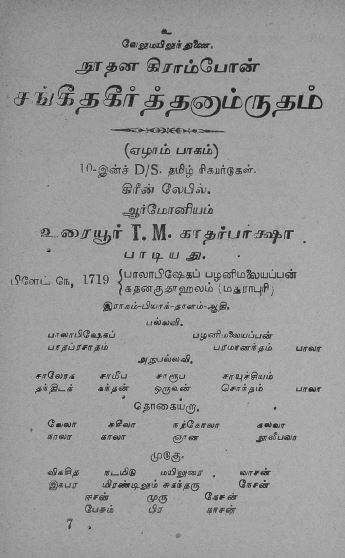 உ
வேலுமயிலுந்துணை.
நூதன கிராம்போன்
சங்கீதகீர்த்தனாம்ருதம்
(ஏழாம் பாகம்)
10-இன்ச் D/S. தமிழ் ரிகார்டுகள்.
கிரீன் லேபில்.
ஆர்மோனியம்
உரையூர் T. M. காதர்பாக்ஷா
பாடியது.
பிளேட் நெ, 1719 { பாலாபிஷேகப் பழனிமலையப்பன்
கதனகுதூஹலம் (மதுராபுரி)
இராகம்-பியாக்-தாளம்-ஆதி.
பல்லவி.
பாலாபிஷேகப் பழனிமலையப்பன்
பாதப்ரசாதம் பரமானந்தம் பாலா
அநுபல்லவி.
சாலோக சாமீப சாரூப சாயுச்சியம்
தந்திடக் கந்தன் ஒருவன் சொந்தம் பாலா
தொகையரு.
வேலா சுசீலா நற்கோலா கலவா
காலா காலா ஞான நூலீபலா
முடுகு.
விகசித நடமிடு மயிலுறை வாசன்
இகபர மிரண்டிலும் சுகந்தரு நேசன்
ஈசன் முரு கேசன்
பேசும் பிர காசன்
7